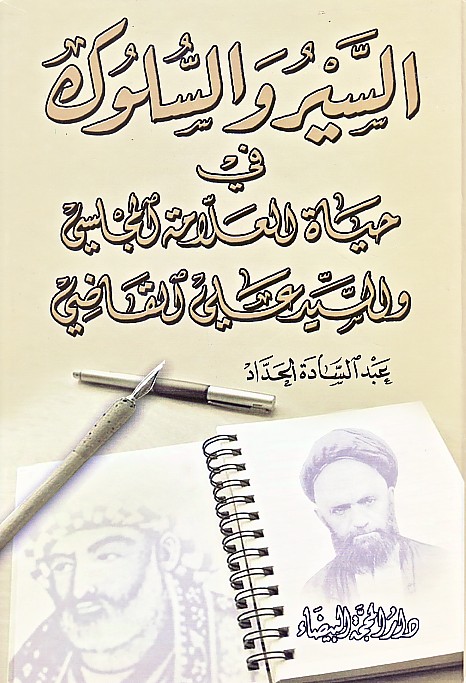 السَّيْرُ وَالسُّلُوكُ
في
حيَاة العَلّامَة المجلسِي
وَالسَّيِّد عَلي القَاضِي
عَبْد السَّادَة الحَدَّاد
دَارُ المحَجَّة البَيضَاء